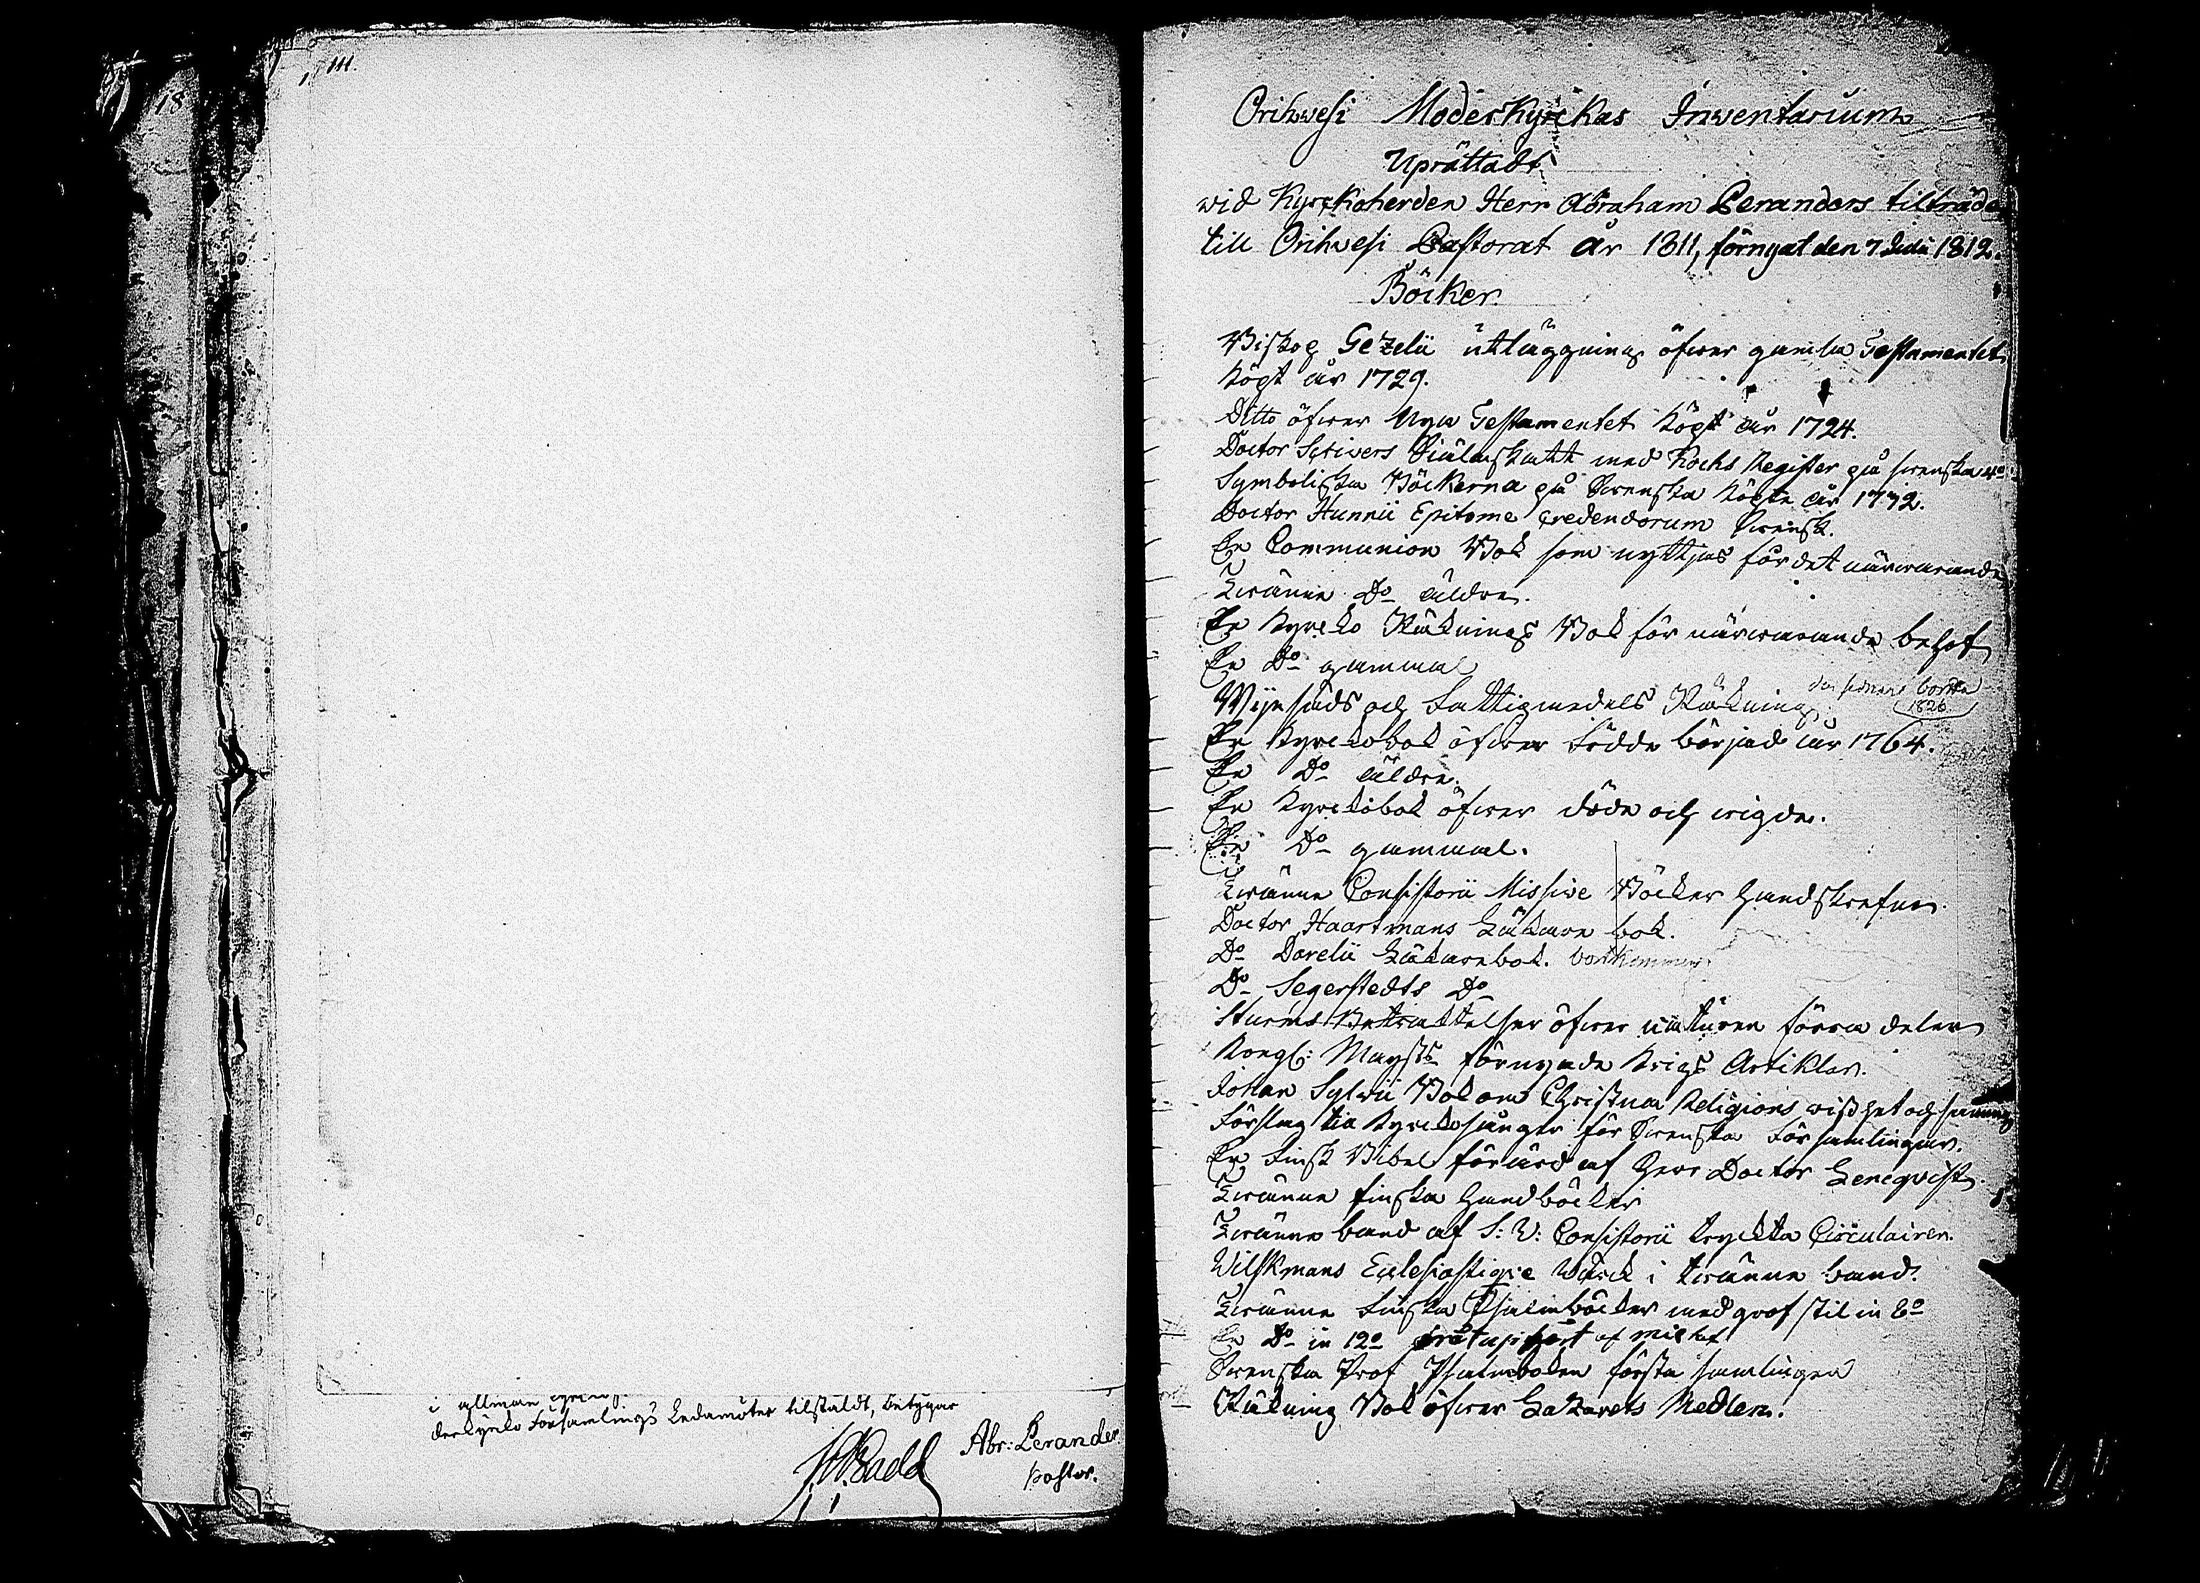 111.
18
i allman
derkyrko Församlings Ledamöter tilstäldt, betygar
Abr: Perander
Pastor.
Orihwesi Moderkyrckas Inventarium
Uprättadt
wid Kyrckoherden Herr Abraham Peranders tilträde
till Orihwesi Pastorat år 1811, förnyat den 7 Julii 1812.
Böcker.
Biskop Gezelii utläggning öfwer gamla Testamentet
Kögt år 1729.
Ditto öfwer Nya Testamentet Kögt år 1724.
Doctor Scrivers Siälaskatt med Kochs Register på swenska 4o
Symboliska Böckerna på Swenska Kögte år 1772.
Doctor Hunnii Epitome credendorum Swensk.
En Communion Bok som nyttjas för det närwarande
Twänne Do äldre.
En Kyrcko Räknings Bok för närwarande behof
En Do gammal
Wijnsäds och Fattigmedels Räkning
borta
1826
En Kyrckobok öfwer Födde börjad år 1764.
En Do äldre.
En Kyrckobok öfwer döde och wigde.
En Do gammal.
Twänne Consistorii Missive Böcker handskrefne
Doctor Haartmans Läkare bok.
Do Darelii Läkarebok. bortkommen
Do Segerstedts Do
Sturms Betracktelser öfwer naturen förra delen
Kongl: Mayts förnyade Krigs Artiklar.
Johan Sylvii Bok om Christna Religions wisshet och sanning
Förslag til Kyrckosånger för Swenska Församlingar.
En Finsk Bibel förärd af Herr Doctor Lencqvist
Twänne finska Handböcker
Twänne band af S: V: Consistorii tryckta Circulairer.
Wilskmans Ecclesiastique Wärck i twänne band.
Twänne Finska Psalmböcker med grof stil in 8o
En Do in 12o
Swenska Prof Psalmboken första samlingen
Räkning Bok öfwer Lazarets Medlen.